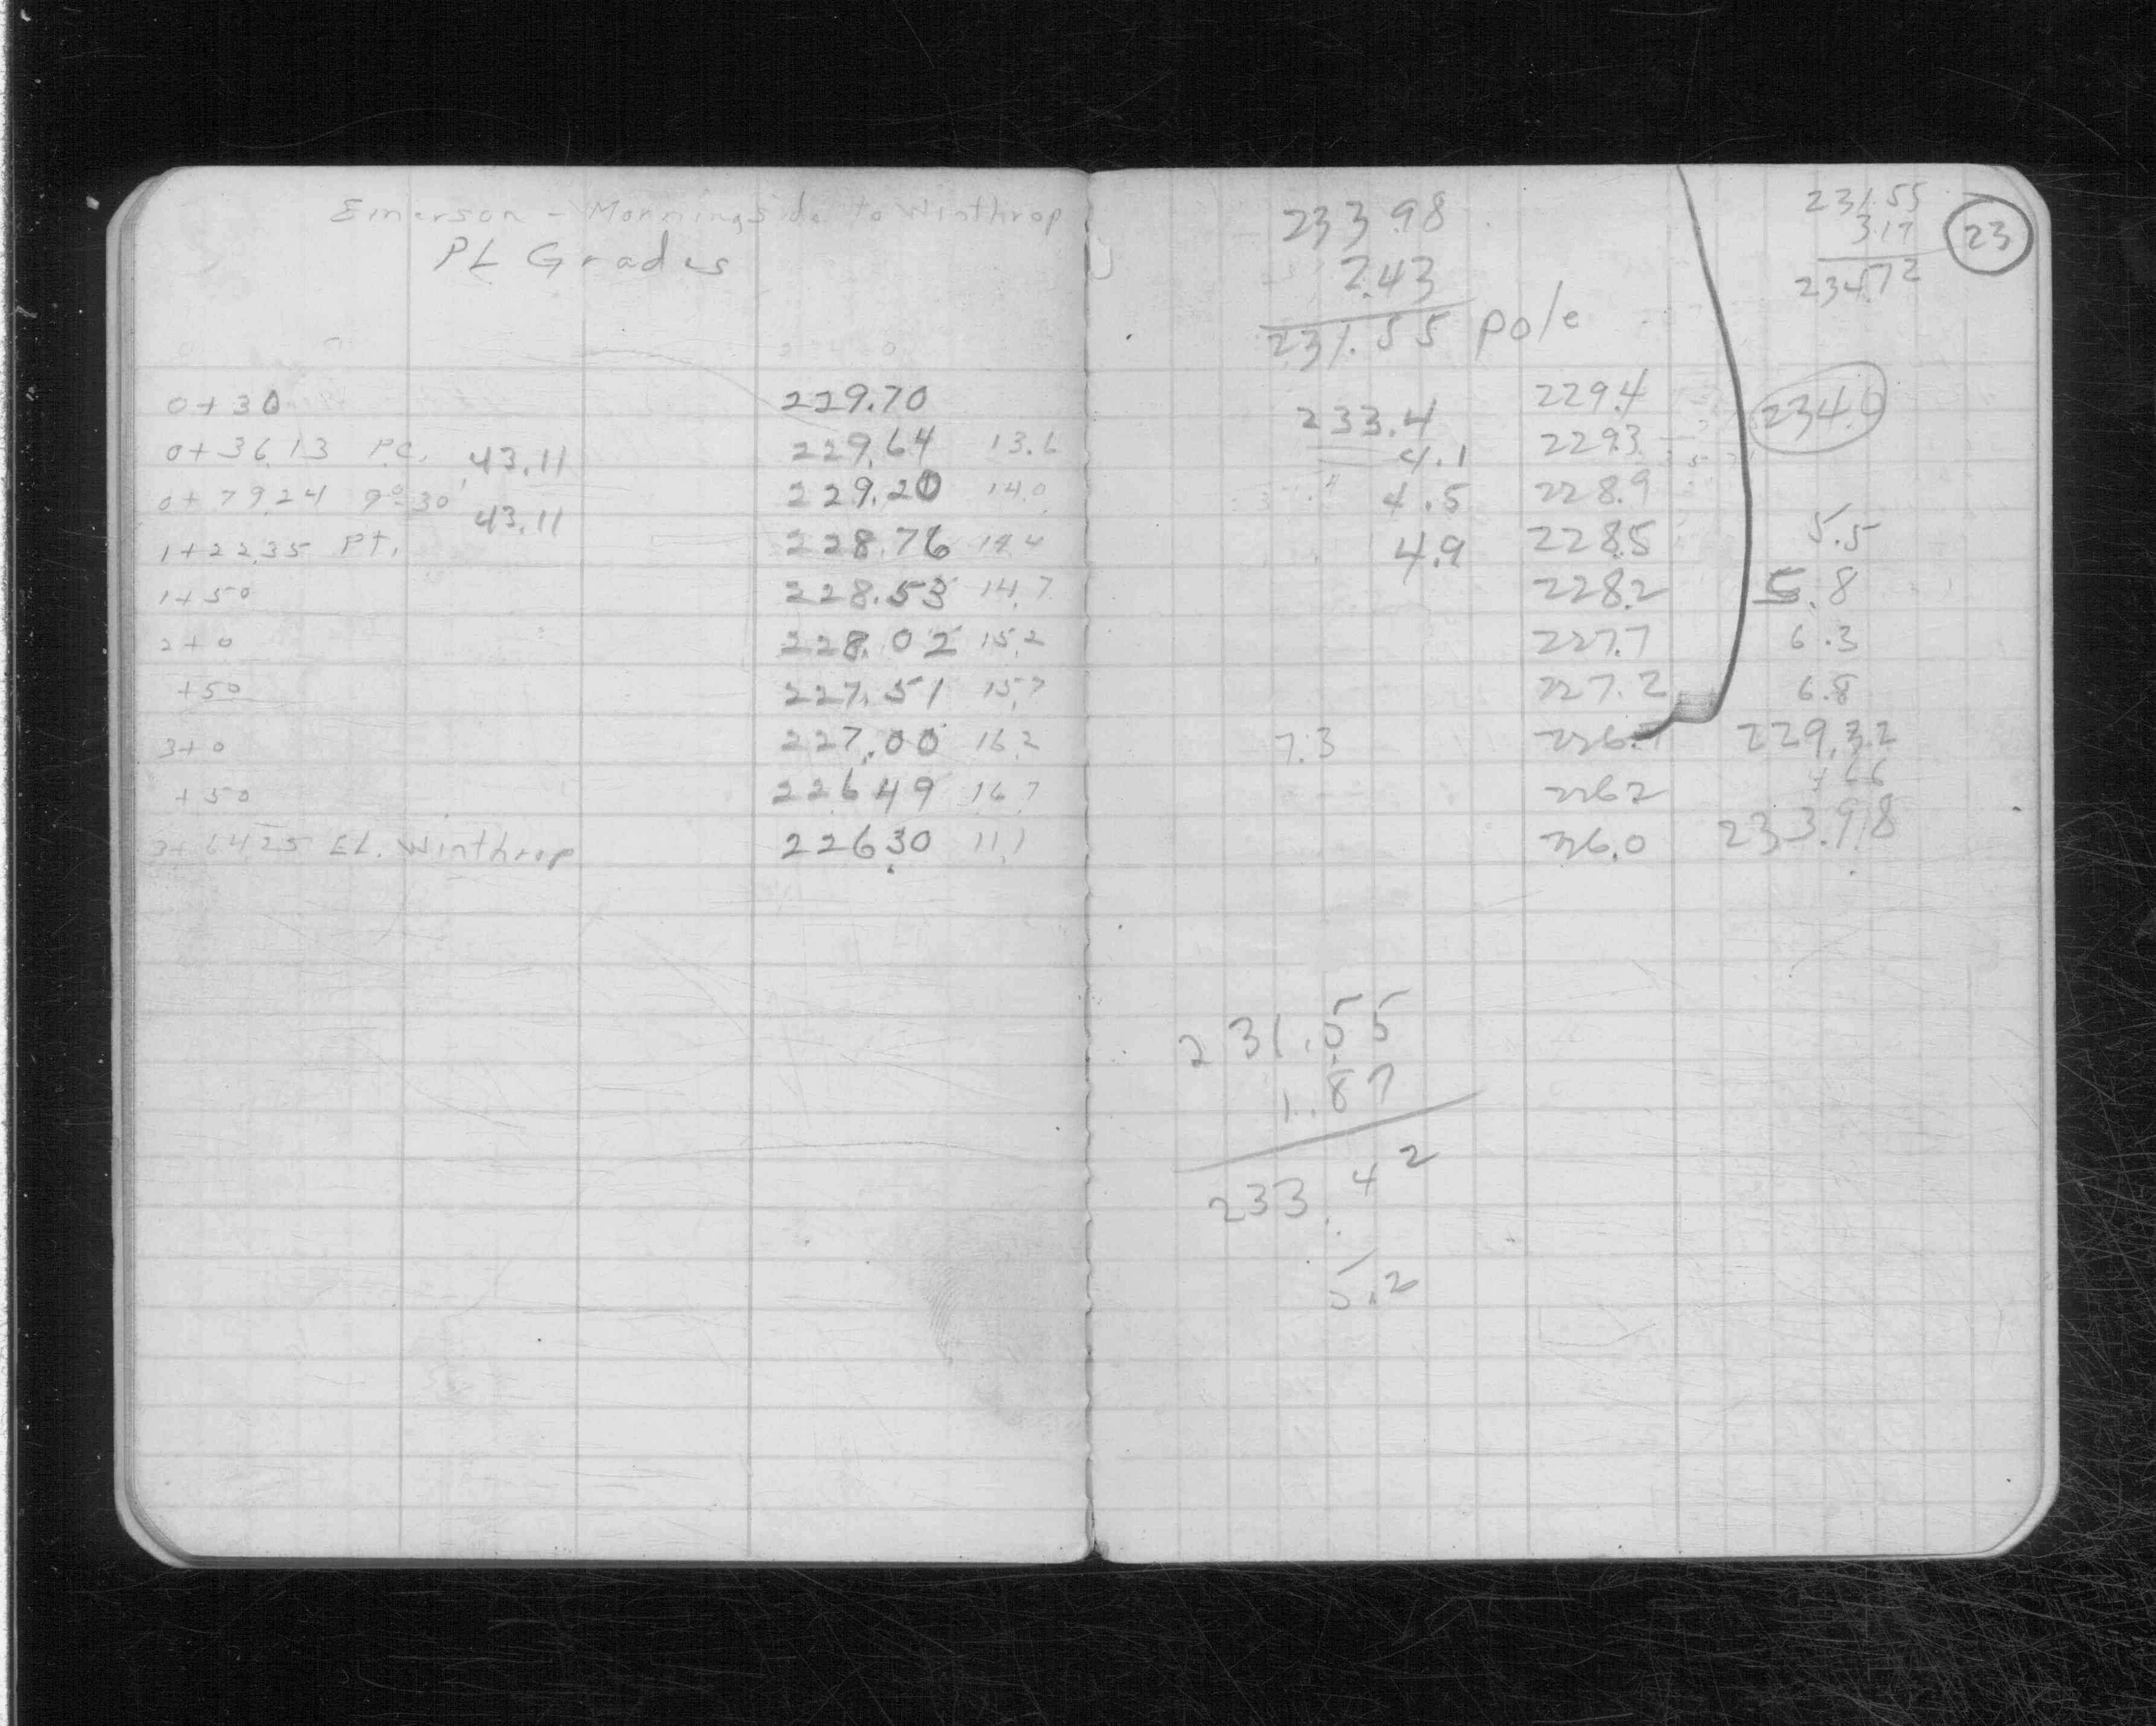 Emerson - Morningside to Winthrop
PL Grades
0+30 229.70
0+36.13 P.C. 43.11 229.64 13.6
0+79.24 9°-30' 43.11 229.20 14.0
1+22.35 Pt. 228.76 14.4
1+50 228.53 14.7
2+0 228.02 15.2
+50 227.51 15.7
3+0 227.00 16.2
+50 226.49 16.7
3+64.25 EL. Winthrop 226.30 11.1
23
233.98
2.43
231.55 pole
233.4 229.4
4.1 229.3
" 4.5 228.9
4.9 228.5
228.2
227.7
227.2
7.3 226.7
226.2
26.0
231.55
3.17
234.72
5.5
5.8
6.3
6.8
229.32
4.66
233.98
231.55
1.87
233.42
5.2